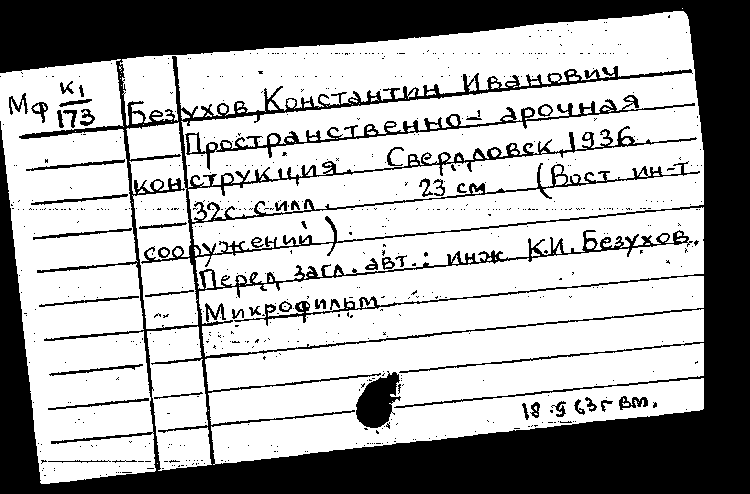 Мф К1/173
Безухов, Константин Иванович
Пространственно-арочная
конструкция. Свердловск, 1936.
32с. с илл. 23 см. (Вост. ин-т
сооружений).
Перед загл. авт.: инж К.И. Безухов.
Микрофильм
18.9 63г вт.